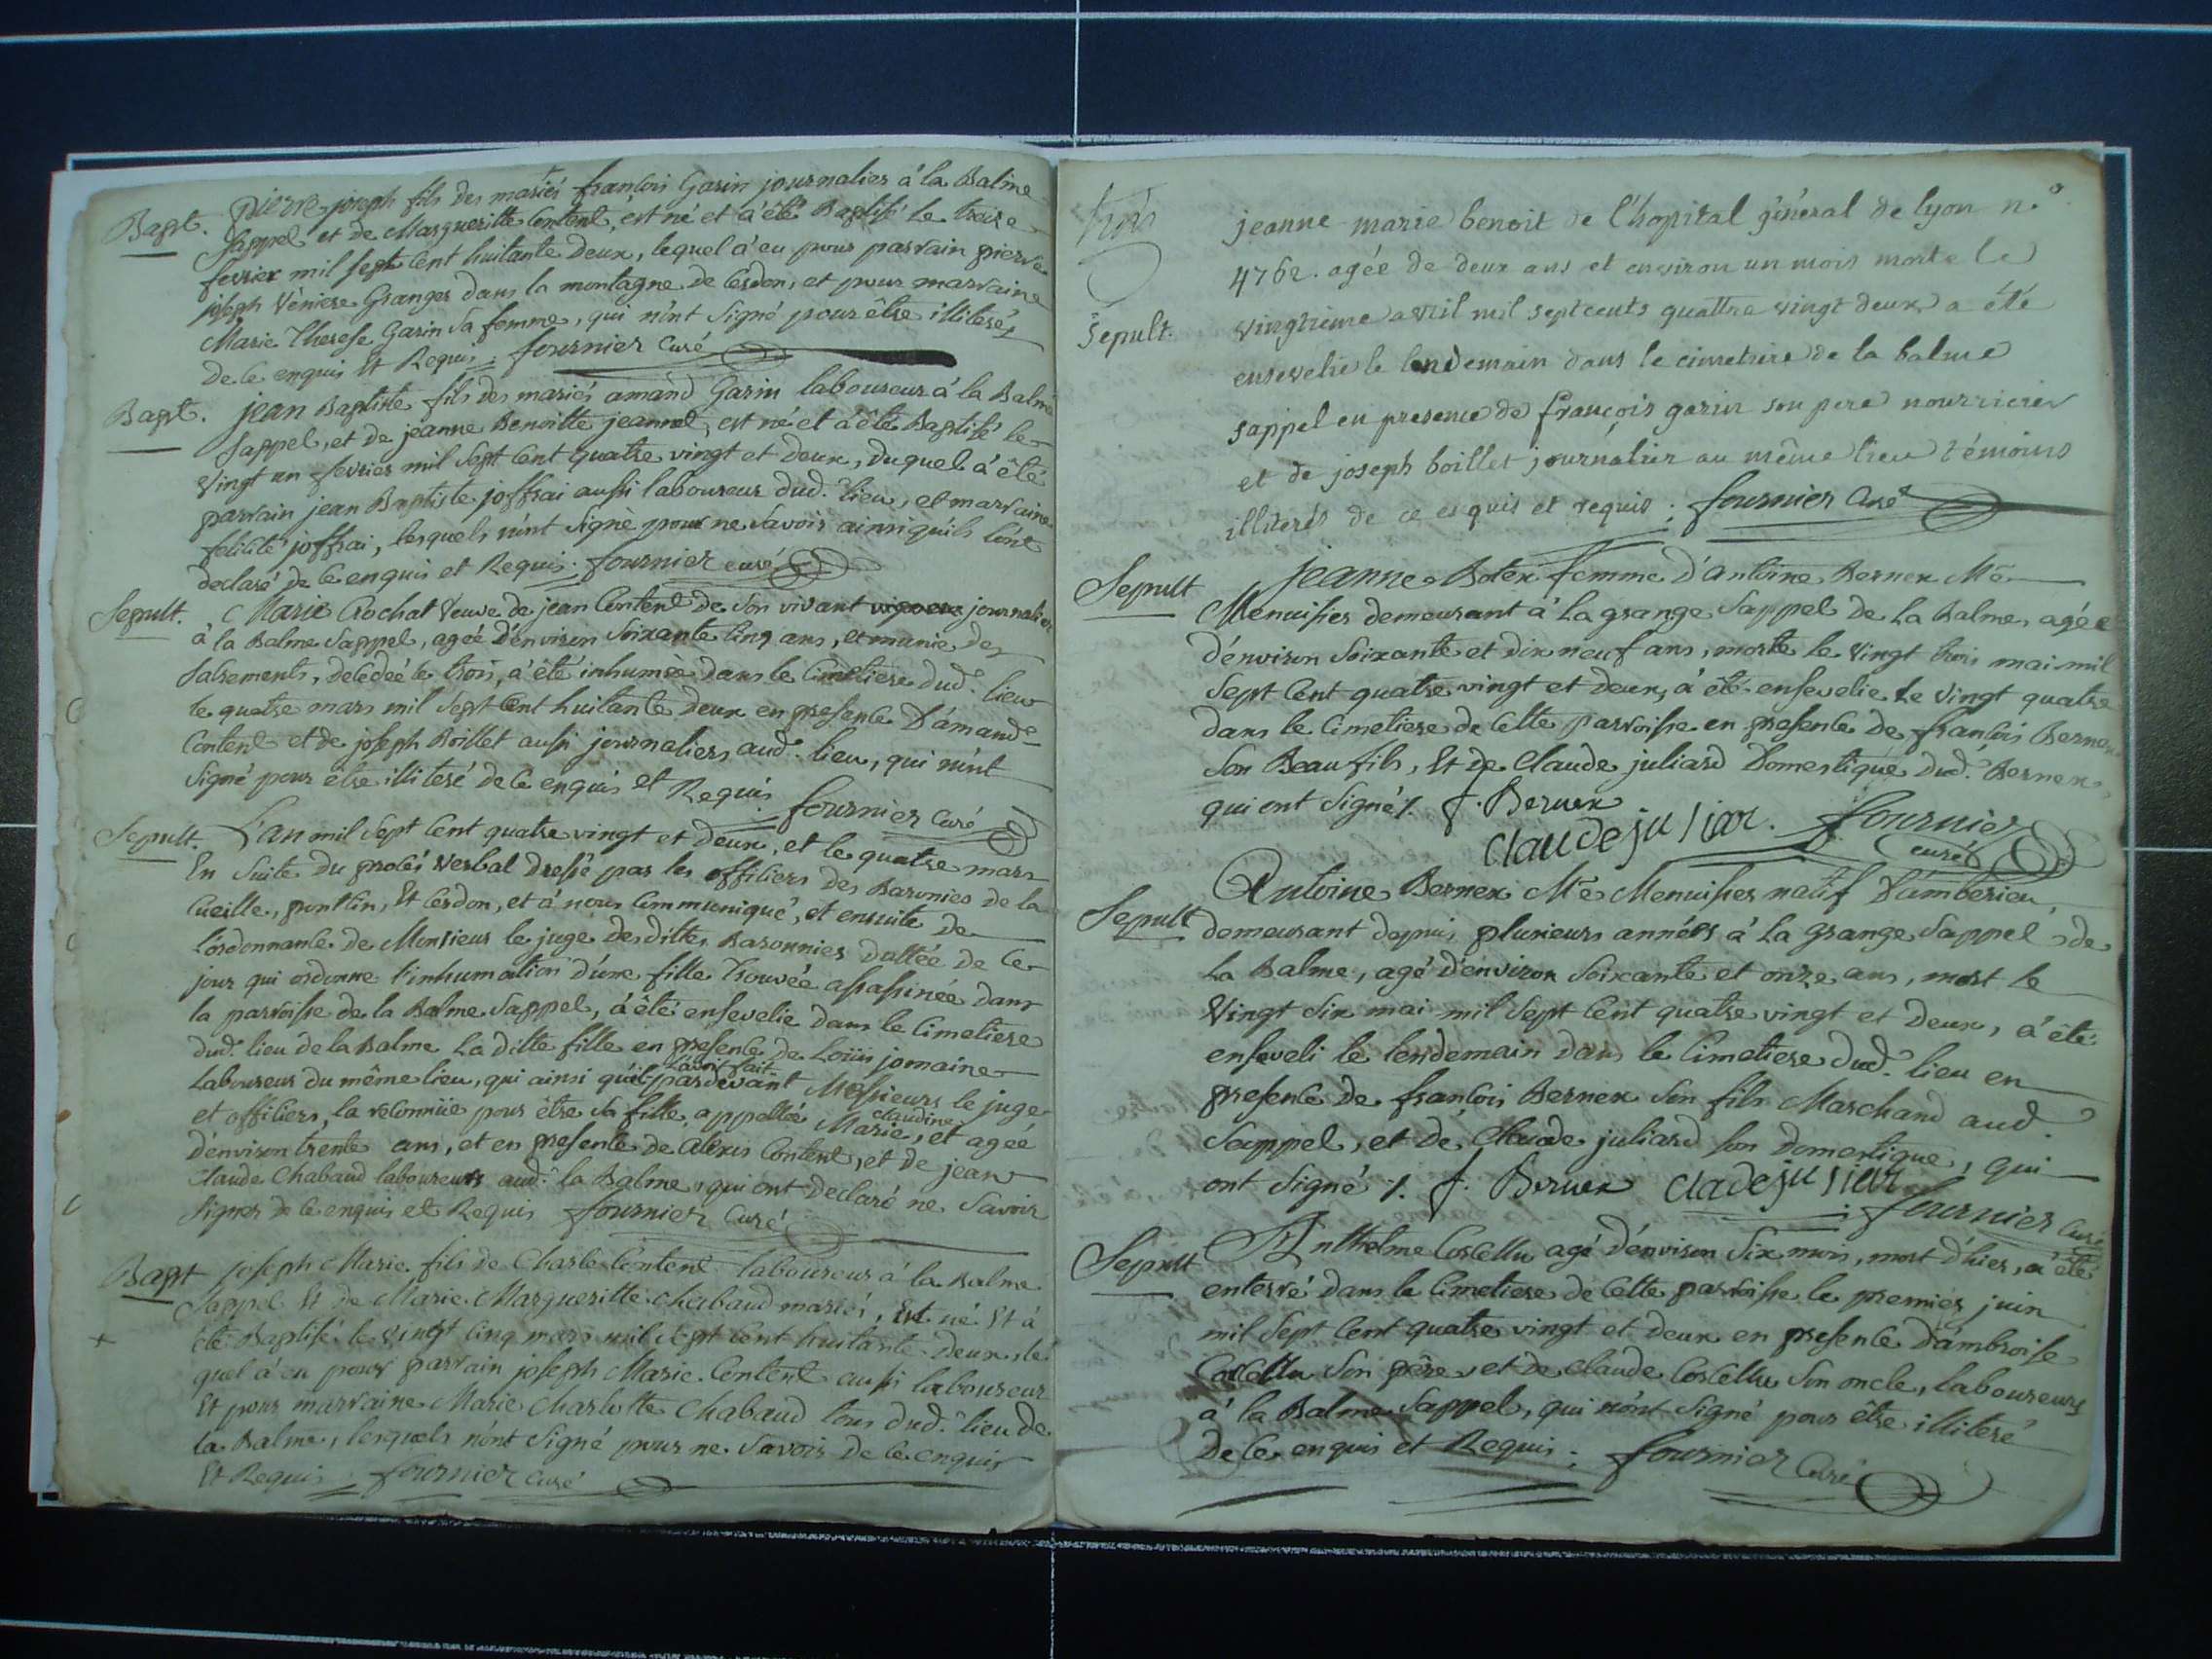 Bapt. pierre joseph fils des mariés françois Garin journalier à la Balme
Sappel et de Margueritte Content, est né et à été Baptisé le treize
fevrier mil sept cent huitante deux, lequel à eu pour parrain pierre
joseph Veniere Granger dans la montagne de Cerdon, et pour marraine
Marie Therese Garin sa femme, qui n'ont signé pour être illiterés
de ce enquis et Requis. fournier curé
Bapt. jean Baptiste fils des mariés amand Garin laboureur à la Balme
Sappel, et de jeanne Benoitte jeannet, est né et à été Baptisé le
vingt un fevrier mil sept cent quatre vingt et deux, duquel à été
parrain jean Baptiste joffrai aussi laboureur dud. lieu, et marraine
felicité joffrai, lesquels n'ont signé pour ne savoir ainsi qu'ils l'ont
declaré de ce enquis et Requis. fournier curé
Sepult. Marie Crochat veuve de jean Content de son vivant journalier
à la Balme Sappel, agée d'environ soixante cinq ans, et munie des
sacrements, decedée le trois, à été inhumée dans le cimetiere dud. lieu
le quatre mars mil sept cent huitante deux en presence d'amand
Content et de joseph Boillet aussi journaliers aud. lieu, qui n'ont
signé pour être illiteré de ce enquis et Requis fournier curé
Sepult. L'an mil sept cent quatre vingt et deux, et le quatre mars
En suite du procés verbal dressé par les officiers des Baronies de la
Cueille, ponttin, Et Cerdon, et à nous communiqué, et ensuite de
l'ordonnance de Monsieur le juge desdittes Baronnies dattée de ce
jour qui ordonne l'inhumation d'une fille trouvée assassinée dans
la parroisse de la Balme Sappel, à été ensevelie dans le cimetiere
dud. lieu de la Balme la ditte fille en presence de Loüis jomaine
laboureur du même lieu, qui ainsi qu'il l'avoit fait pardevant Messieurs le juge
et officiers, la reconnüe pour être sa fille appellée Marie claudine, et agée
d'environ trente ans, et en presence de alexis Content, et de jean
Claude Chabaud laboureurs aud. la Balme, qui ont declaré ne savoir
signer de ce enquis et Requis fournier curé
Bapt joseph Marie fils de Charle Content laboureur à la Balme
Sappel Et de Marie Margueritte Chabaud mariés, Est né Et à
été Baptisé le vingt cinq mars mil sept cent huitante deux, le
quel à eu pour parrain joseph Marie Content aussi laboureur
Et pour marraine Marie Charlotte Chabaud tous dud. lieu de
la Balme, lesquels n'ont signé pour ne savoir de ce enquis
Et Requis. fournier curé
trois
jeanne marie benoit de l'hopital général de lyon n.º
4762. agée de deux ans et environ un mois morte le
Sepult. vingtieme avril mil sept cents quattre vingt deux a été
ensevelie le lendemain dans le cimetiere de la balme
sappel en presence de françois garin son pere nourricier
et de joseph boillet journalier au même lieu témoins
illiterés de ce enquis et requis; fournier Curé
Sepult jeanne Botex femme d'antoine Bernex Me
Menuisier demeurant à la grange Sappel de la Balme, agée
d'environ soixante et dix neuf ans, morte le vingt trois mai mil
sept cent quatre vingt et deux, à été ensevelie le vingt quatre
dans le cimetiere de cette parroisse en presence de françois Bernex
son Beau fils, Et de Claude juliard domestique dud. Bernex,
qui ont signé %. f. Bernex
claude ju liar. fournier
curé
Sepult Antoine Bernex Me Menuisier natif d'amberieu,
demeurant depuis plusieurs années à la grange Sappel de
la Balme, agé d'environ soixante et onze ans, mort le
vingt six mai mil sept cent quatre vingt et deux, à été
enseveli le lendemain dans le cimetiere dud. lieu en
presence de françois Bernex son fils Marchand aud.
Sappel, et de Claude juliard son domestique, qui
ont signé %. f. Bernex clade ju liar
fournier curé
Sepult Anthelme Coscellu agé d'environ six mois, mort d'hier, à été
enterré dans le cimetiere de cette parroisse le premier juin
mil sept cent quatre vingt et deux en presence d'ambroise
Coscellu son père, et de claude Coscellu son oncle, laboureurs
à la Balme Sappel, qui n'ont signé pour être illiteré
de ce enquis et Requis; fournier Curé